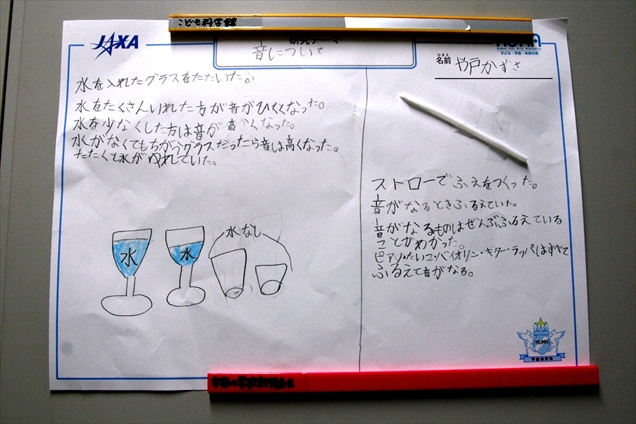 こども科学館
JAXA
音について
名前 や戸かずさ
水を入れたグラスをたたいた。
水をたくさんいれた方が音がひくくなった。
水を少なくした方は音が高くなった。
水がなくてもちがうグラスだったら音は高くなった。
たたくと水がゆれていた。
水
水
水なし
ストローでふえをつくった。
音がなるときふるえていた。
音がなるものはぜんぶふるえている
ことがわかった。
ピアノ・たいこ・バイオリン・ギター・ラッパはすべて
ふるえて音がなる。